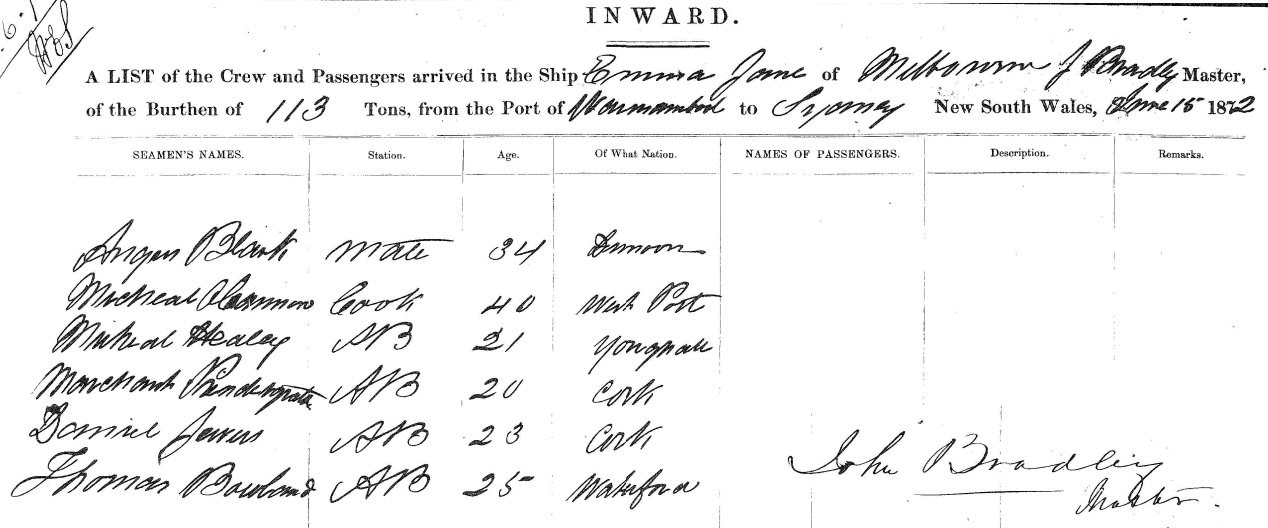 INWARD.
A LIST of the Crew and Passengers arrived in the Ship Emma Jane of Melbourne J Bradley Master,
of the Burthen of 113 Tons, from the Port of to Sydney New South Wales, June 15 1872
SEAMEN'S NAMES. Station. Age. Of What Nation. NAMES OF PASSENGERS. Description. Remarks.
Angus Black Mate 34 Dunoon
Micheal Cook 40 West Port
Micheal Healey AB 21 Youghall
Marchant AB 20 Cork
Daniel AB 23 Cork
Thomas AB 25 Waterford
John Bradley
Master.